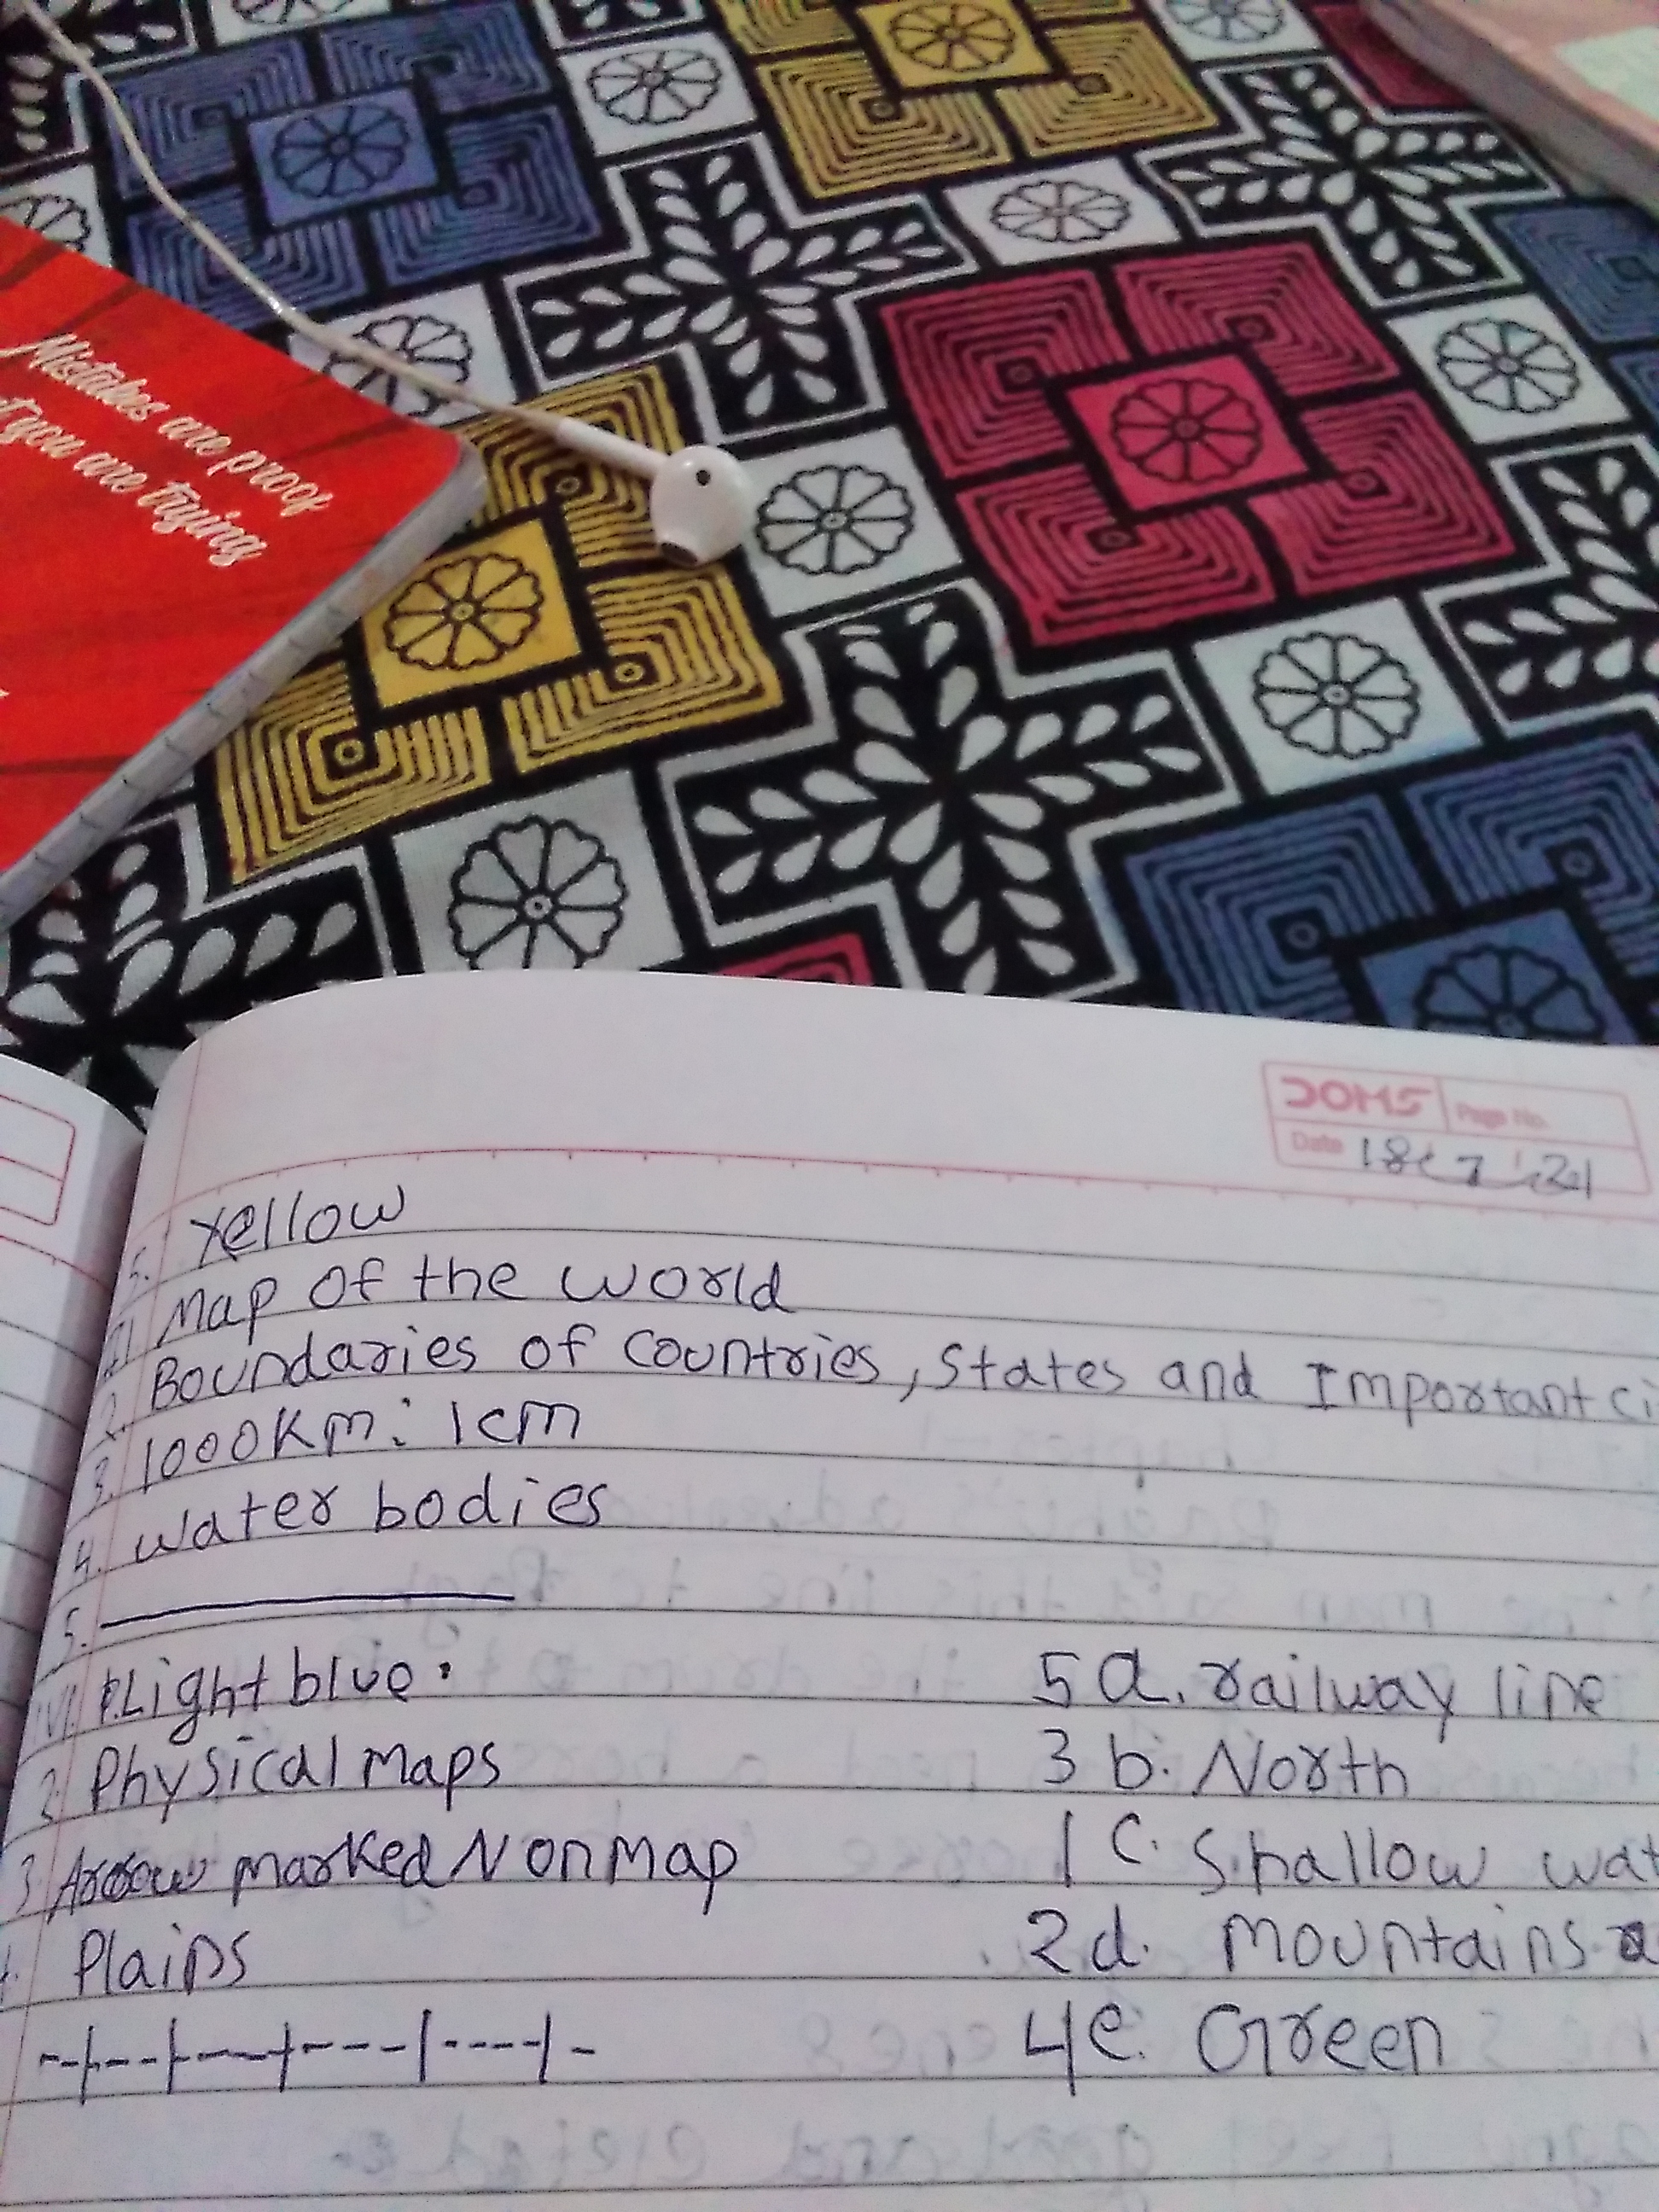 Mistakes are proof
t you are trying
DOMS Page No.
Date
5. Yellow
Map of the world
2. Boundaries of countries, States and Important ci
3. 1000Km: 1cm
4. water bodies
5.
Light blue. 5 a. railway line
2. Physical Maps 3 b. North
3 Arrow marked N on Map 1 c. Shallow wat
Plains 2 d. mountains a
4 e. Green